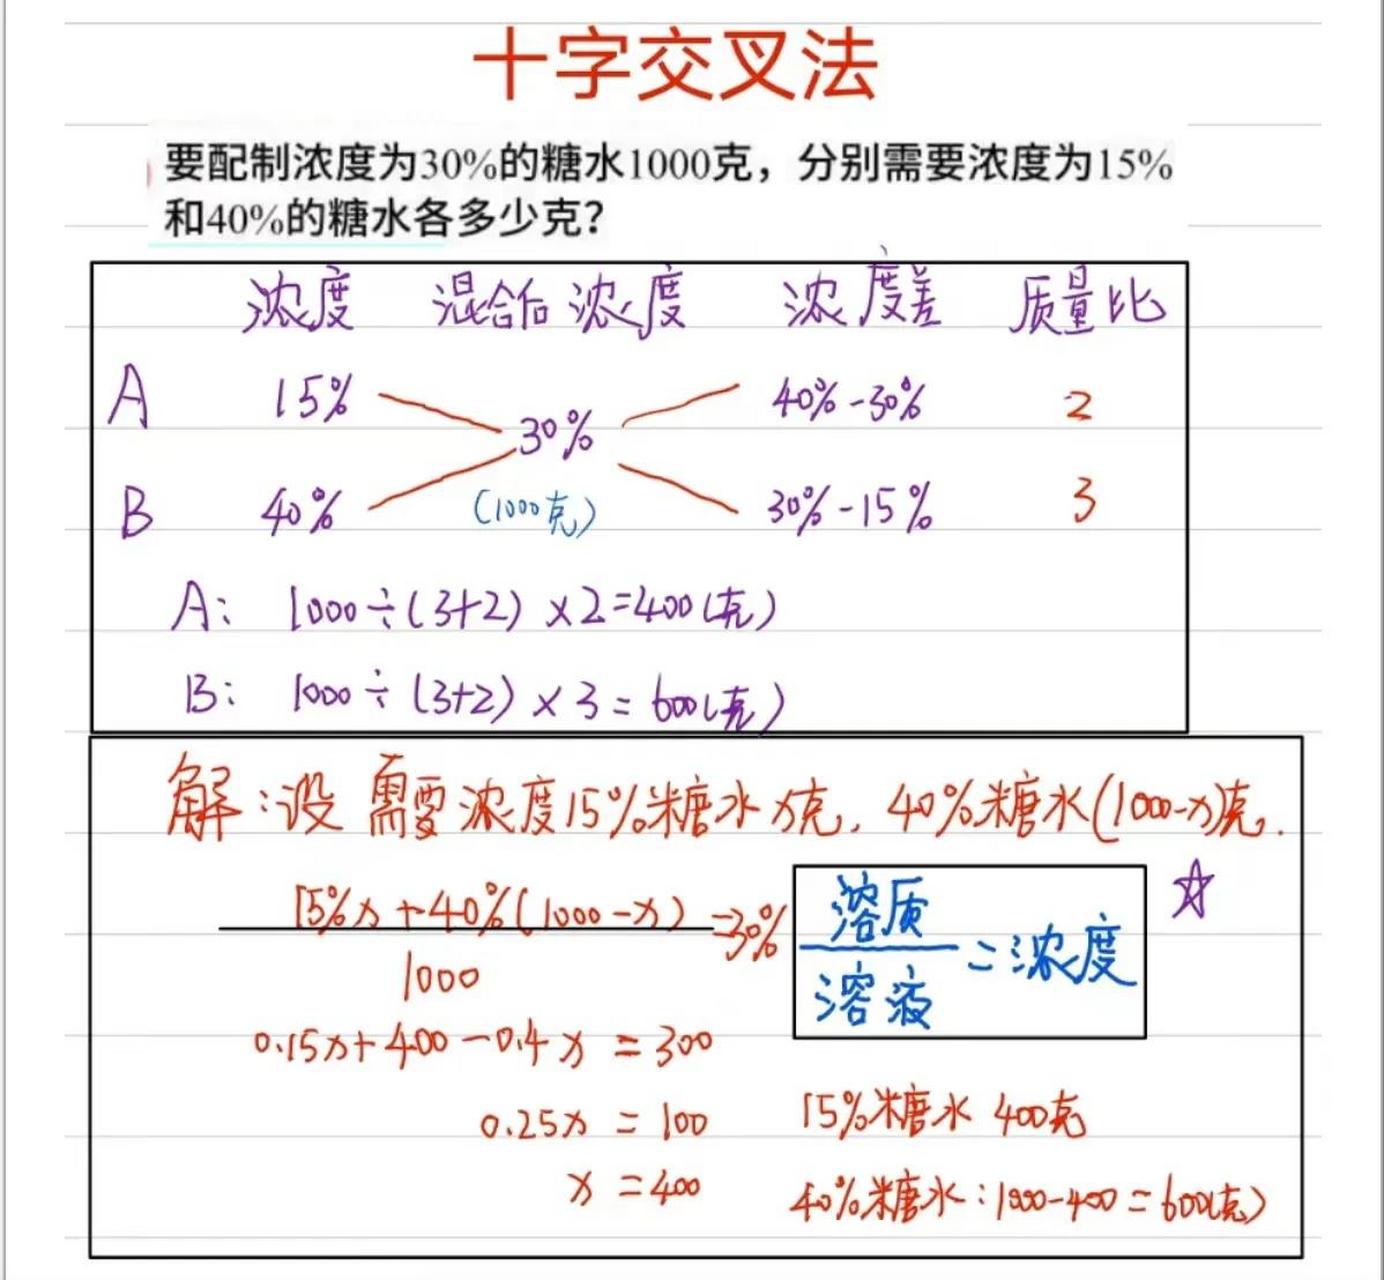 十字交叉法
要配制浓度为30%的糖水1000克，分别需要浓度为15%
和40%的糖水各多少克？
浓度 混合后浓度 浓度差 质量比
A 15% 40%-30% 2
30%
B 40% (1000克) 30%-15% 3
A: 1000÷(3+2)×2=400(克)
B: 1000÷(3+2)×3=600(克)
解:设需要浓度15%糖水x克, 40%糖水(1000-x)克.
15%x+40%(1000-x) =30%
1000
溶质
溶液 =浓度
0.15x+400-0.4x=300
0.25x=100
15%糖水 400克
x=400
40%糖水:1000-400=600(克)